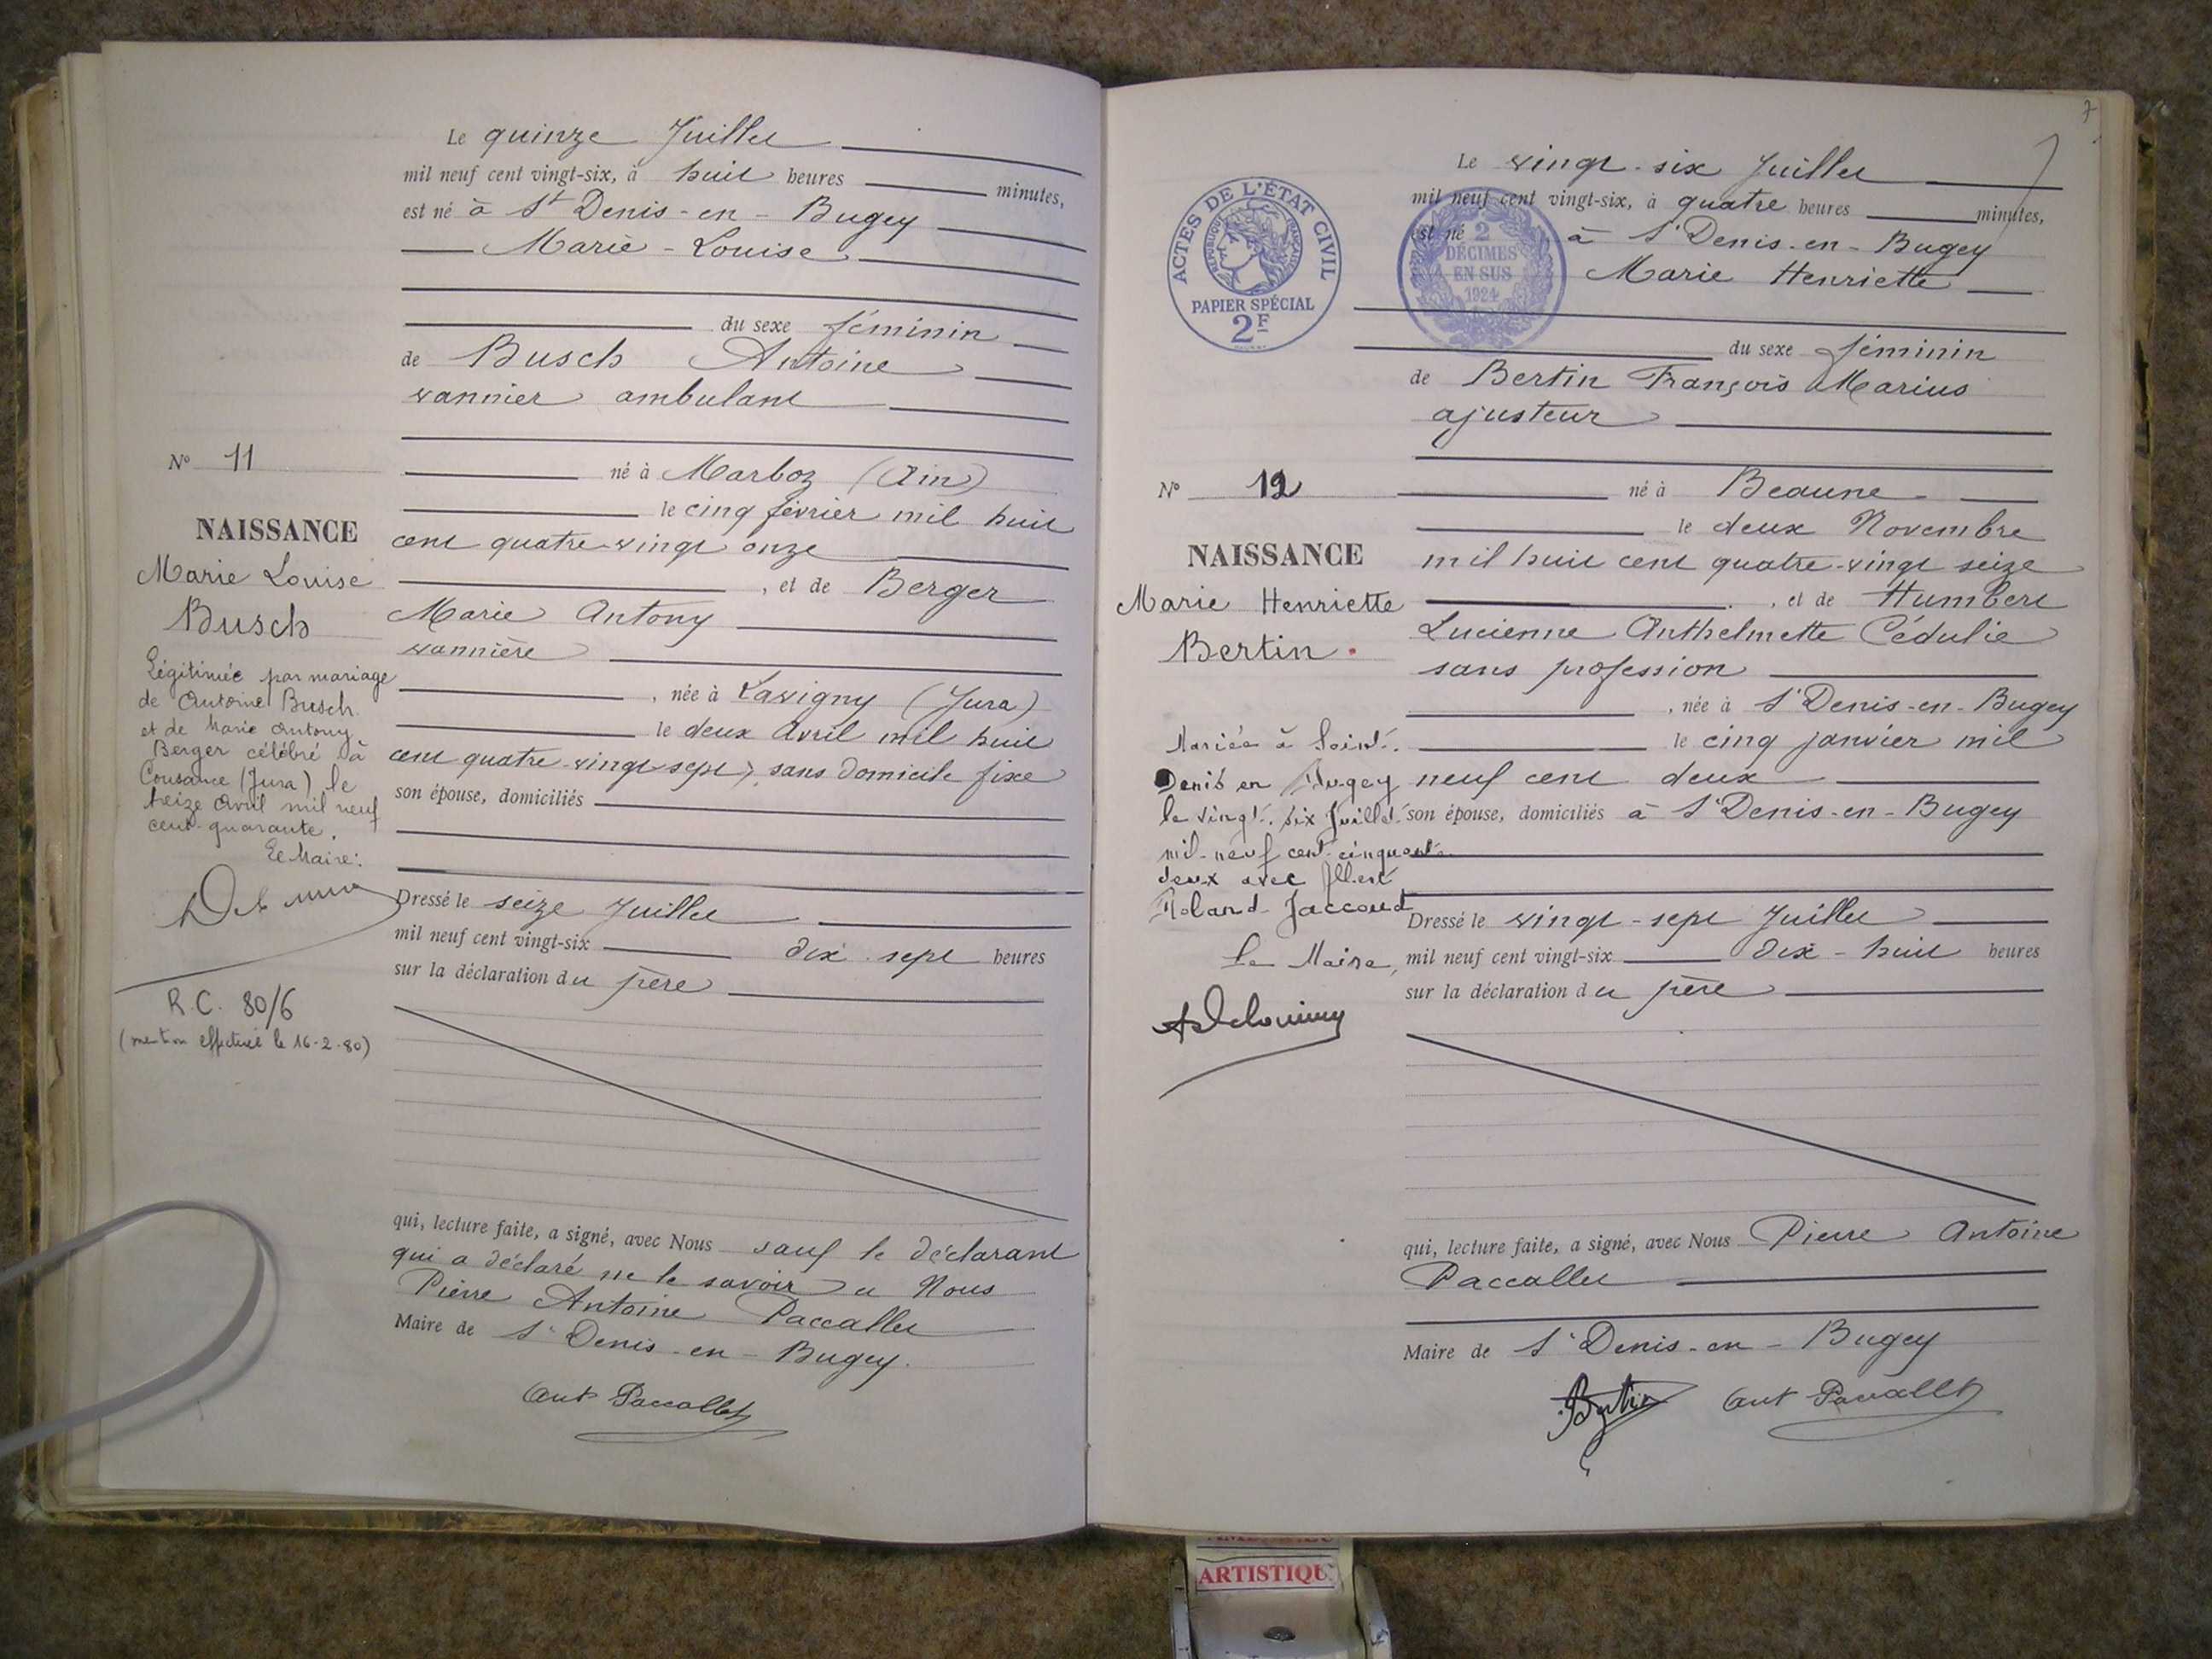 Le quinze Juillet
mil neuf cent vingt-six, à huit heures minutes,
est né à St Denis-en-Bugey
Marie-Louise
du sexe féminin
de Busch Antoine
vannier ambulant
né à Marboz (Ain)
le cinq février mil huit
cent quatre-vingt onze
, et de Berger
Marie Antony
vannière
, née à Lavigny (Jura)
le deux Avril mil huit
cent quatre-vingt sept, sans domicile fixe
son épouse, domiciliés
Dressé le seize Juillet
mil neuf cent vingt-six dix-sept heures
sur la déclaration du père
qui, lecture faite, a signé, avec Nous sauf le déclarant
qui a déclaré ne le savoir et Nous
Pierre Antoine Paccallet
Maire de St Denis-en-Bugey.
Ant Paccallet
No 11
NAISSANCE
Marie Louise
Busch
Légitimée par mariage
de Antoine Busch
et de Marie Antony
Berger célébré à
Cousance (Jura) le
treize Avril mil neuf
cent-quarante.
Le Maire:
R.C. 80/6
(mention effectuée le 16-2-80)
7
ACTES DE L'ÉTAT CIVIL
RÉPUBLIQUE FRANÇAISE
PAPIER SPÉCIAL
2F
2
DÉCIMES
EN SUS
1924
Le vingt-six Juillet
mil neuf cent vingt-six, à quatre heures minutes,
est né à St Denis-en-Bugey
Marie Henriette
du sexe féminin
de Bertin François Marius
ajusteur
né à Beaune
le deux Novembre
mil huit cent quatre-vingt seize
, et de Humbert
Lucienne Anthelmette Cédulie
sans profession
, née à St Denis-en-Bugey
le cinq janvier mil
neuf cent deux
son épouse, domiciliés à St Denis-en-Bugey
Dressé le vingt-sept Juillet
mil neuf cent vingt-six dix-huit heures
sur la déclaration du père
qui, lecture faite, a signé, avec Nous Pierre Antoine
Paccallet
Maire de St Denis-en-Bugey
Bertin Ant Paccallet
No 12
NAISSANCE
Marie Henriette
Bertin.
Mariée à Saint-
Denis en Bugey
le vingt-six Juillet
mil-neuf cent-cinquante
deux avec Albert
Roland Jaccoud
Le Maire,
ARTISTIQU